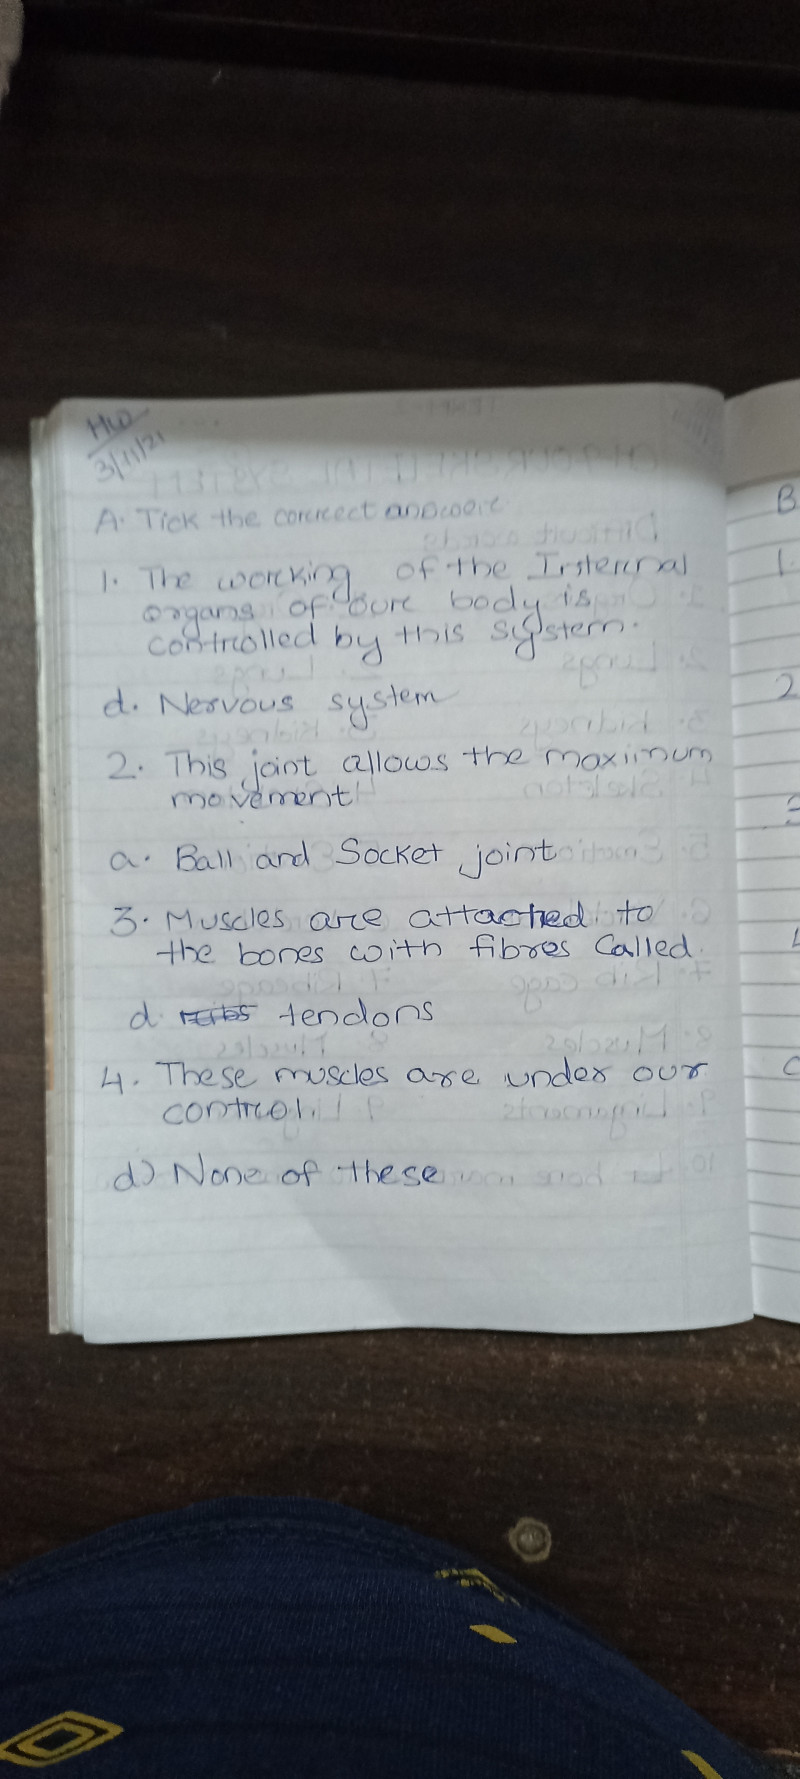 HW
3/11/21
A. Tick the correct answere
1. The working of the Internal
organs of oure body is
controlled by this system.
d. Nervous system
2. This joint allows the maximum
movement
a. Ball and Socket joint
3. Muscles are attached to
the bones with fibres Called.
d. tendons
4. These muscles are under our
control.
d) None of these
B
1.
2